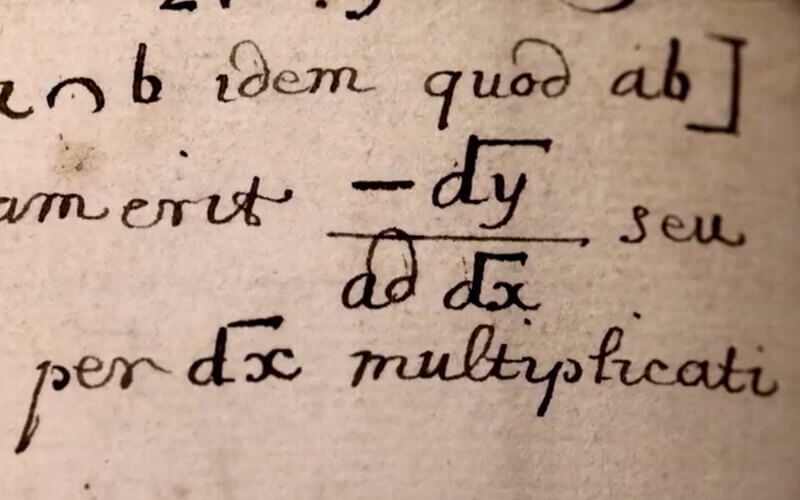 ⌒ b idem quod ab]
am erit −d͞y seu
ad d͞x
per d͞x multiplicati